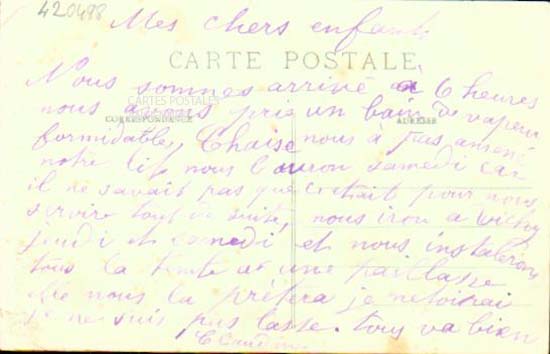 420498
Mes chers enfants
CARTE POSTALE
Nous sommes arrivé a 6 heures
CARTES POSTALES
nous avons pris un bain de vapeur
CORRESPONDANCE
ADRESSE
formidable, Chaise nous à pas amené
notre lit nous l'auron samedi car
il ne savait pas que cetait pour nous
servire tout de suite, nous iron a Vichy
jeudi et samedi et nous instalerons
tous la tente et une paillasse
nous la prêtera je netoirai
je ne suis pas lasse. tous va bien